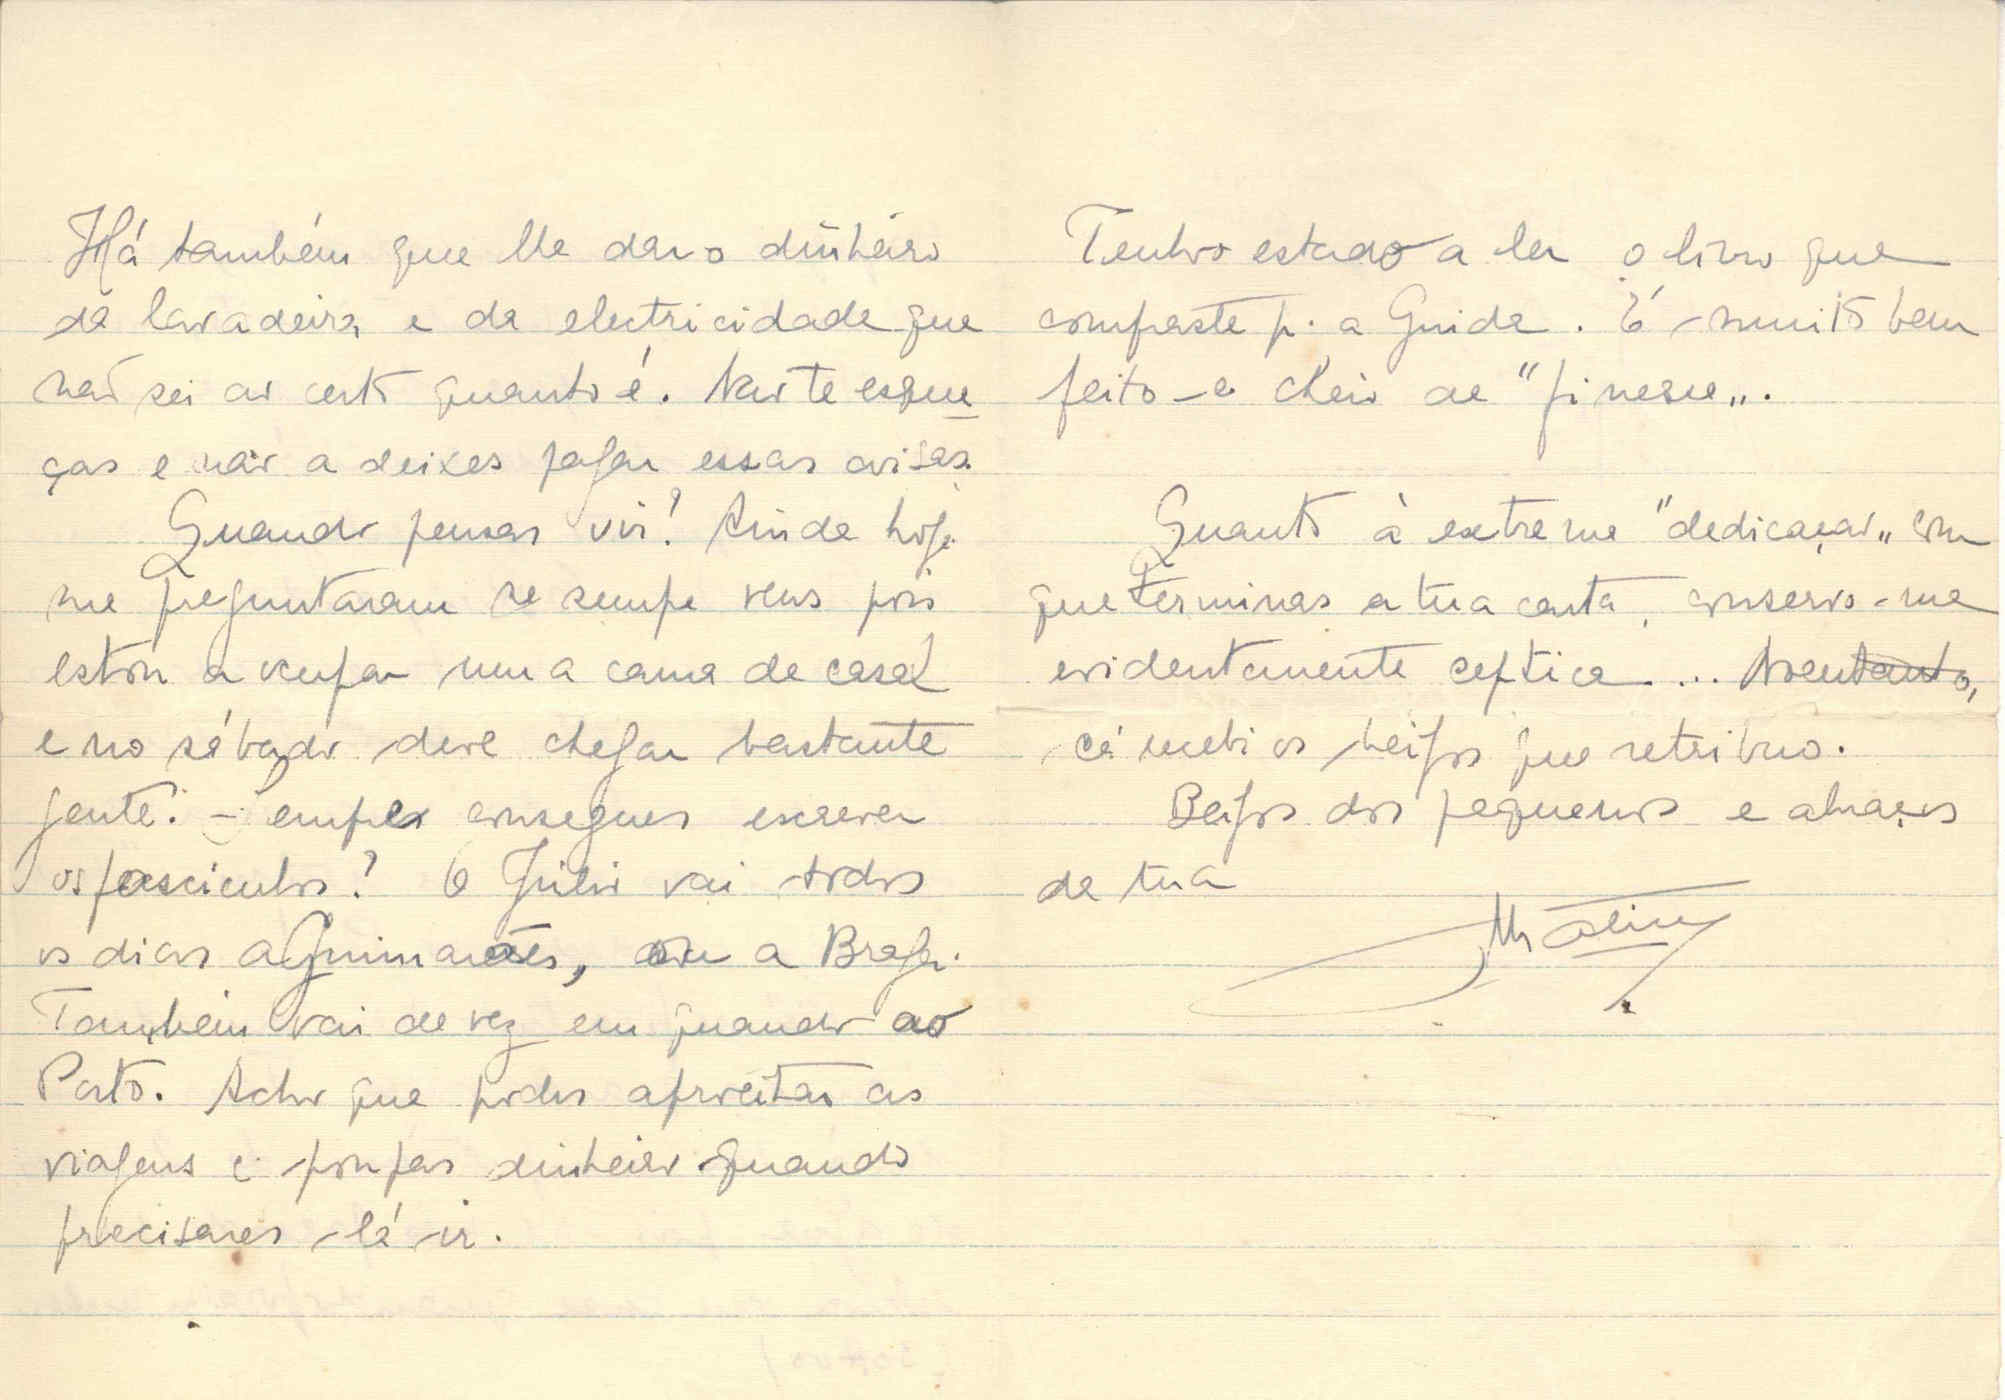 Há também que lhe dar o dinheiro
da lavadeira e da electricidade que
não sei ao certo quanto é. Não te esque
ças e não a deixes pagar essas coisas.
Quando pensas vir? Ainda hoje
me preguntaram se sempre vens pois
estou a ocupar uma cama de casal
e no sábado deve chegar bastante
gente. - consegues escrever
os fasciculos? O Júlio vai todos
os dias a Guimarães, ou a Braga.
Também vai de vez em quando ao
Porto. Acho que podes aproveitar as
viagens e poupas dinheiro quando
precisares lá ir.
Tenho estado a ler o livro que
compraste p. a Guida. É muito bem
feito e cheio de "finesse".
Quanto à extreme "dedicação" com
que terminas a tua carta, conservo-me
evidentemente céptica... No entanto,
cá recebi os beijos que retribuo.
Beijos dos pequenos e abraços
da tua